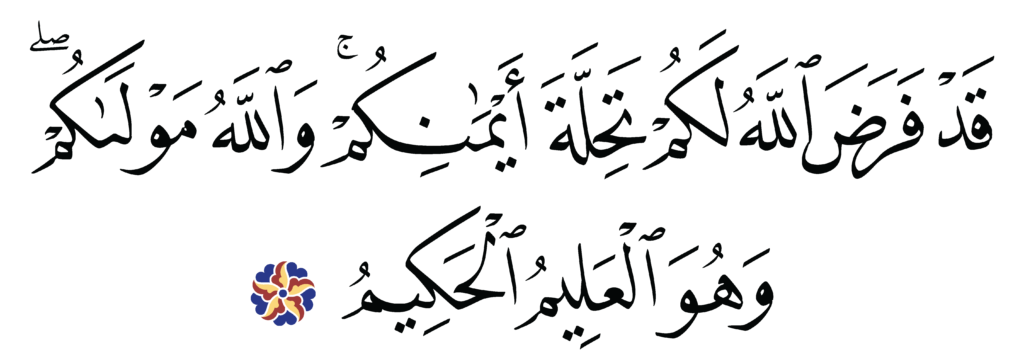 قَدۡ فَرَضَ ٱللَّهُ لَكُمۡ تَحِلَّةَ أَيۡمَٰنِكُمۡۚ وَٱللَّهُ مَوۡلَىٰكُمۡۖ
وَهُوَ ٱلۡعَلِيمُ ٱلۡحَكِيمُ